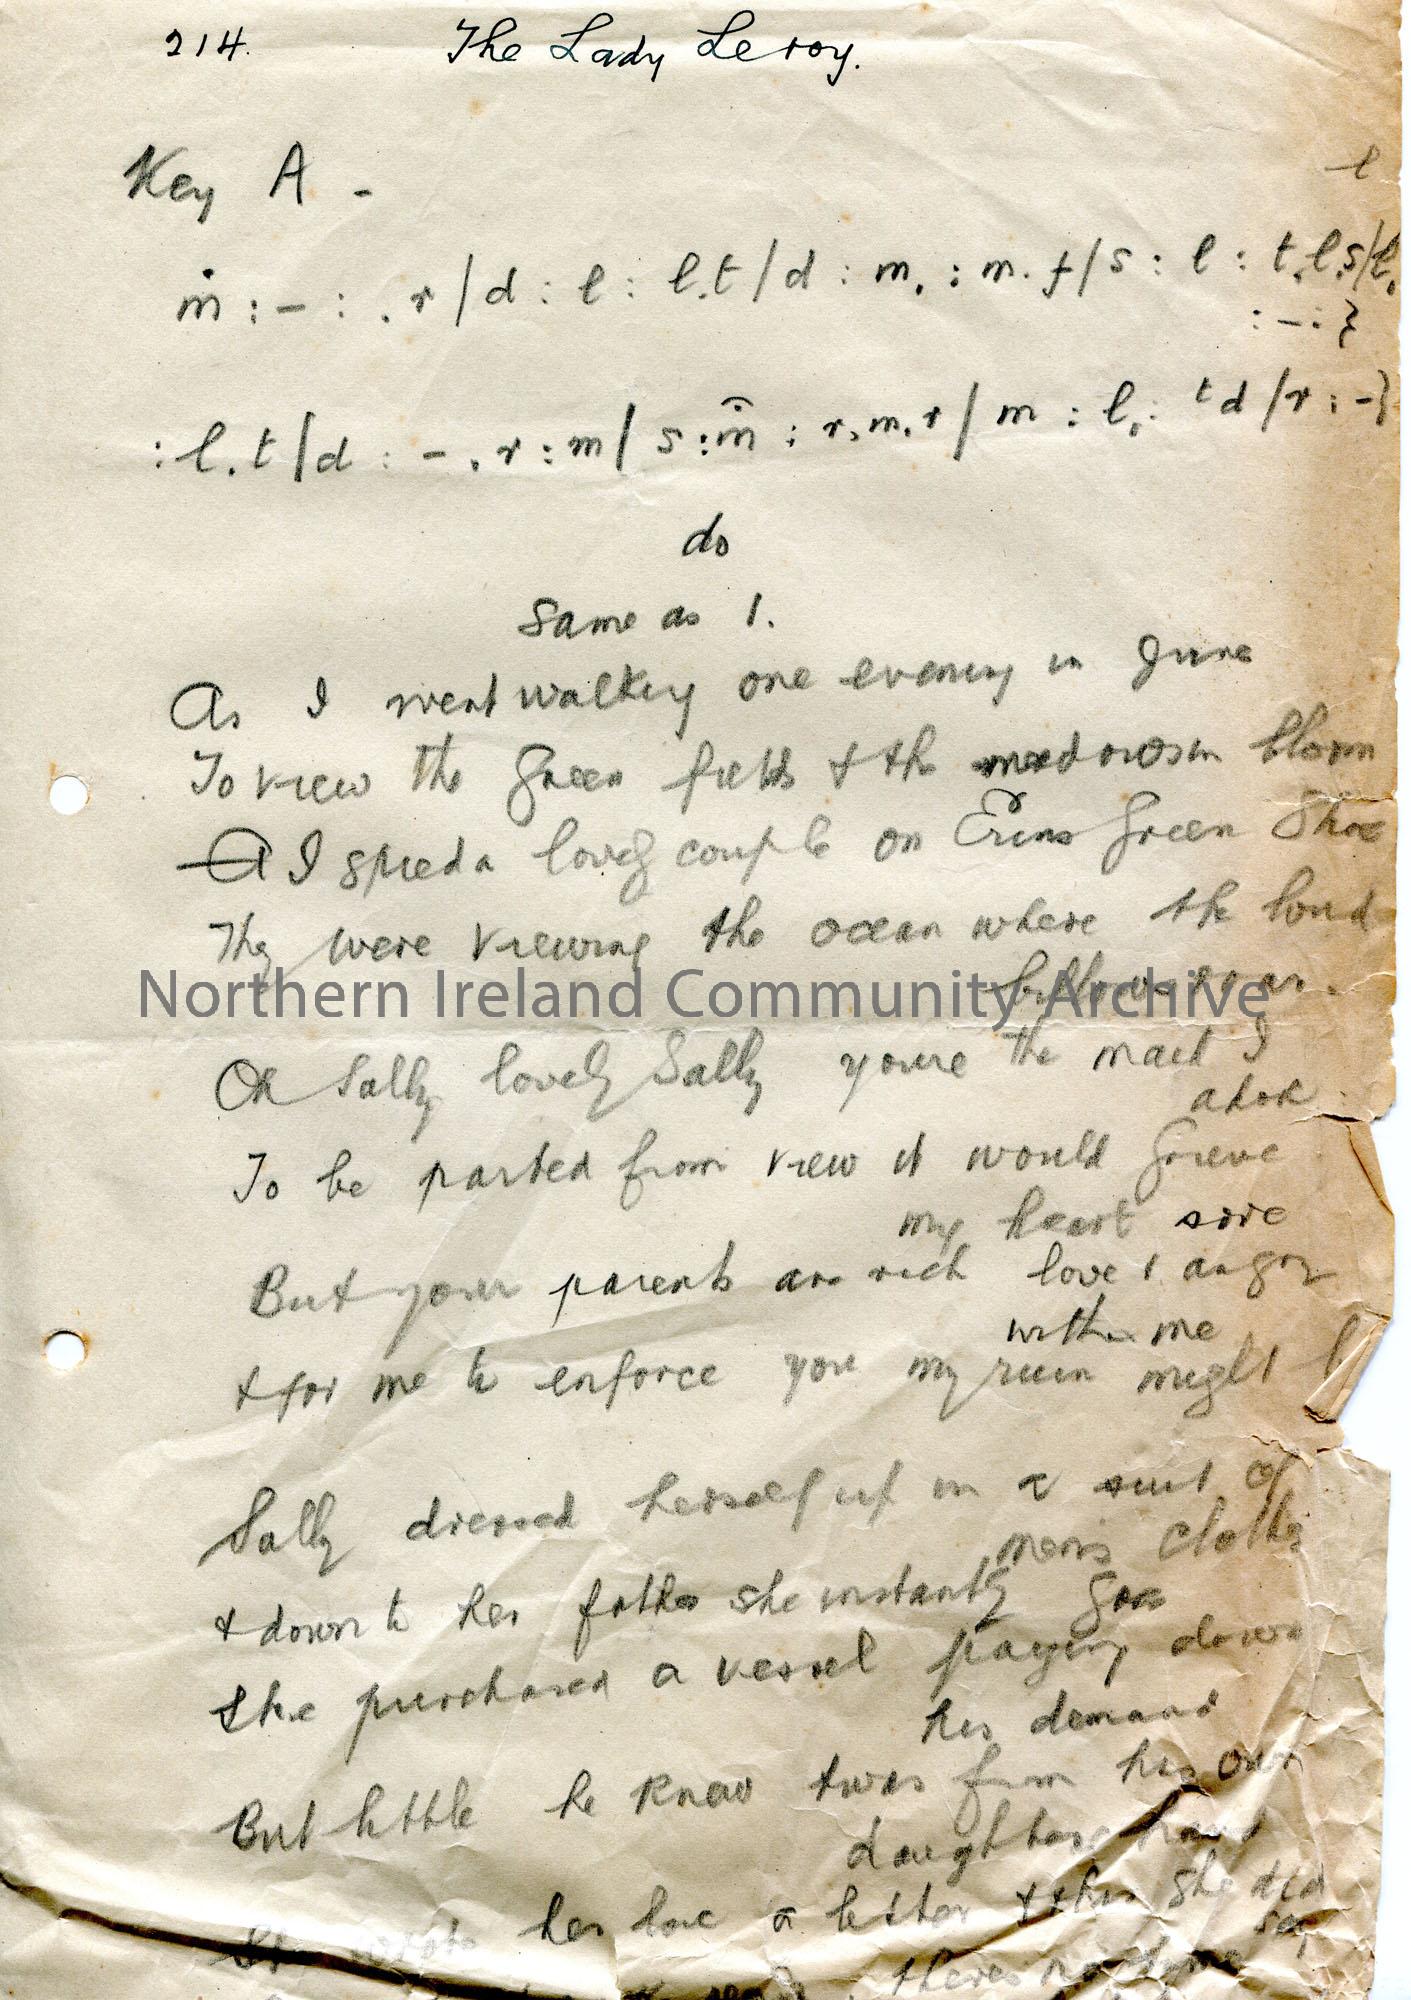 214. The Lady Leroy.
Key A -
l
ṁ : - : . r / d : l : l.t / d : m. : m. f / s : l : t.l.s / l,
: - : }
: l. t / d : - . r : m / s : m : r, m. r / m : l, : t d / r : - }
do
Same as 1.
As I went walking one evening in June
To view the Green fields & the meadows in bloom
A I spied a lovely couple on Erins Green Shore
They were viewing the ocean where the loud
billows roar.
Oh Sally lovely Sally youre the maid I
adore
To be parted from view it would grieve
my heart sore
But your parents are rich love & angry
with me
& for me to enforce you my ruin might
Sally dressed herself up in a suit of
mens clothes
& down to her father she instantly goes
She purchased a vessel paying down
his demand
But little he knew twas from his own
daughters hand
She wrote her love a letter & this she did
say
theres no time
Northern Ireland Community Archive